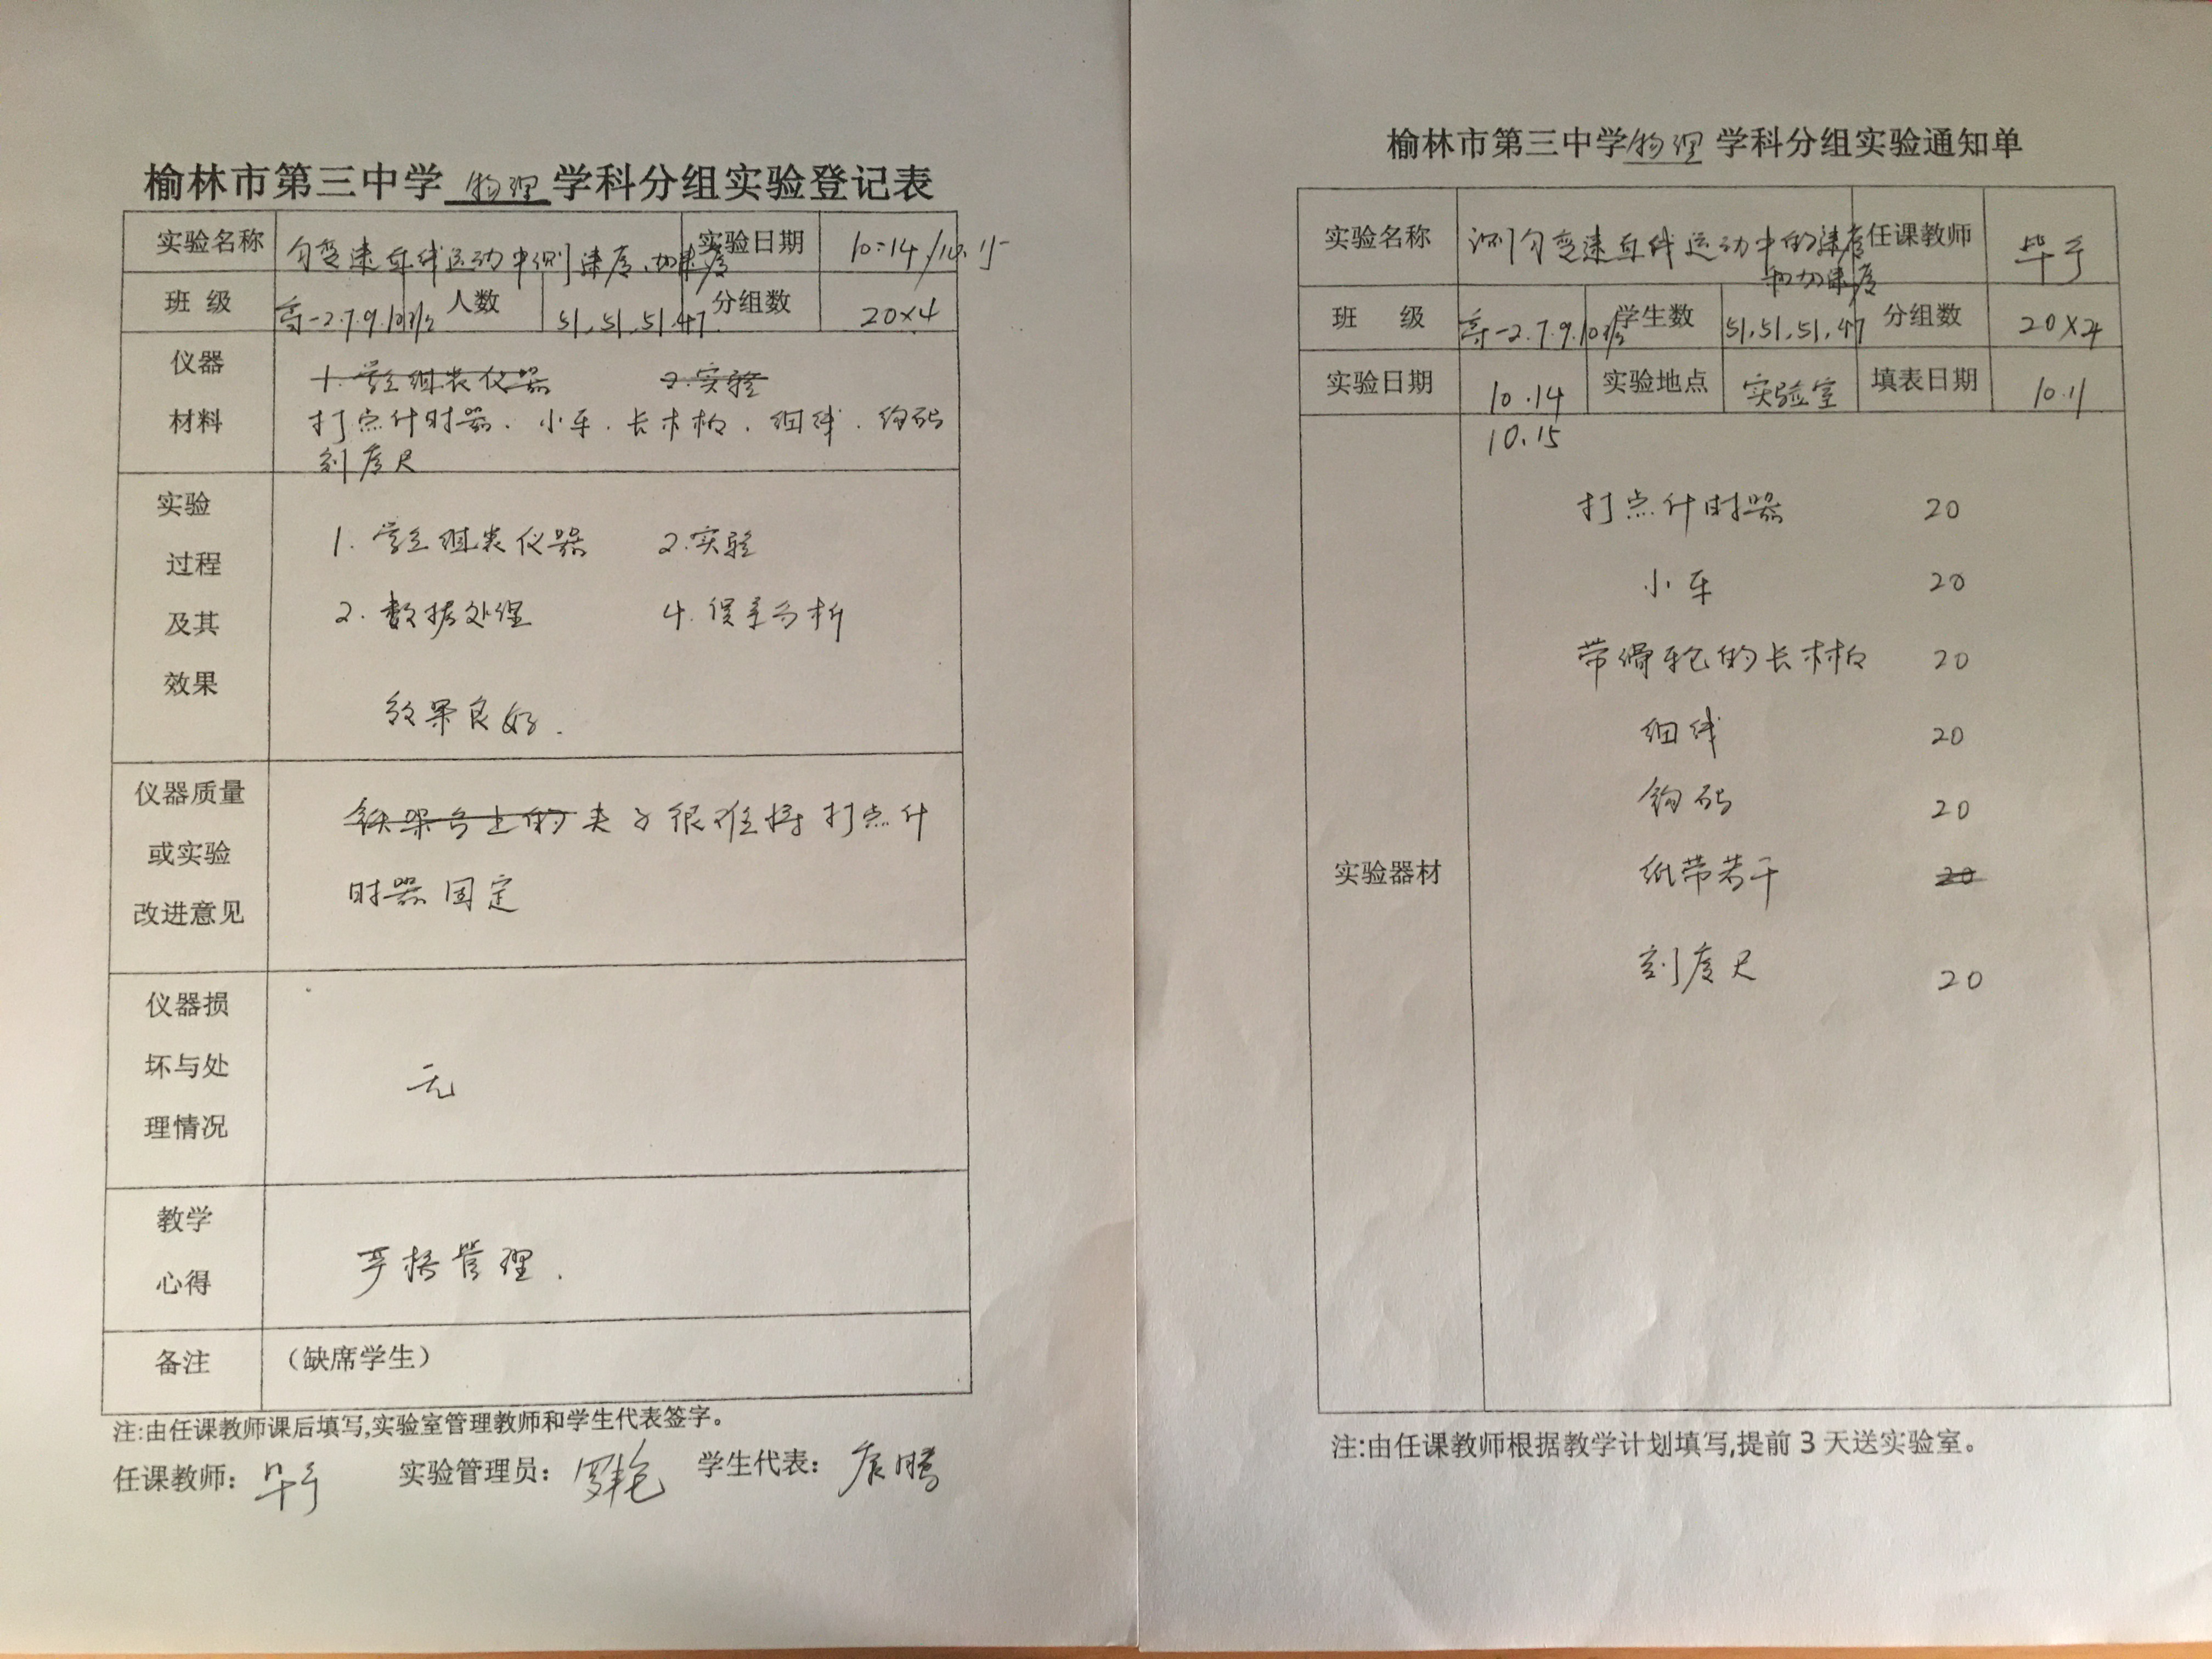 榆林市第三中学 物理 学科分组实验登记表
实验名称 匀变速直线运动中测速度、加速度 实验日期 10.14/10.15
班 级 高一2.7.9.10班 人数 51,51,51,47. 分组数 20×4
仪器 1. 学生组装仪器 2.实验
材料 打点计时器、小车、长木板、细线、钩码
刻度尺
实验
1. 学生组装仪器 2.实验
过程
及其 2. 数据处理 4. 误差分析
效果
效果良好.
仪器质量 铁架台上的夹子很难将打点计
或实验
时器固定
改进意见
仪器损
坏与处 无
理情况
教学
严格管理.
心得
备注 (缺席学生)
注:由任课教师课后填写,实验室管理教师和学生代表签字。
任课教师: 毕于 实验管理员: 罗艳 学生代表: 腾
榆林市第三中学 物理 学科分组实验通知单
实验名称 测匀变速直线运动中的速度 任课教师 毕于
和加速度
班 级 高一2.7.9.10班 学生数 51,51,51,47 分组数 20×4
实验日期 10.14 实验地点 实验室 填表日期 10.11
10.15
打点计时器 20
小车 20
带滑轮的长木板 20
细线 20
钩码 20
实验器材 纸带若干 20
刻度尺 20
注:由任课教师根据教学计划填写,提前 3 天送实验室。